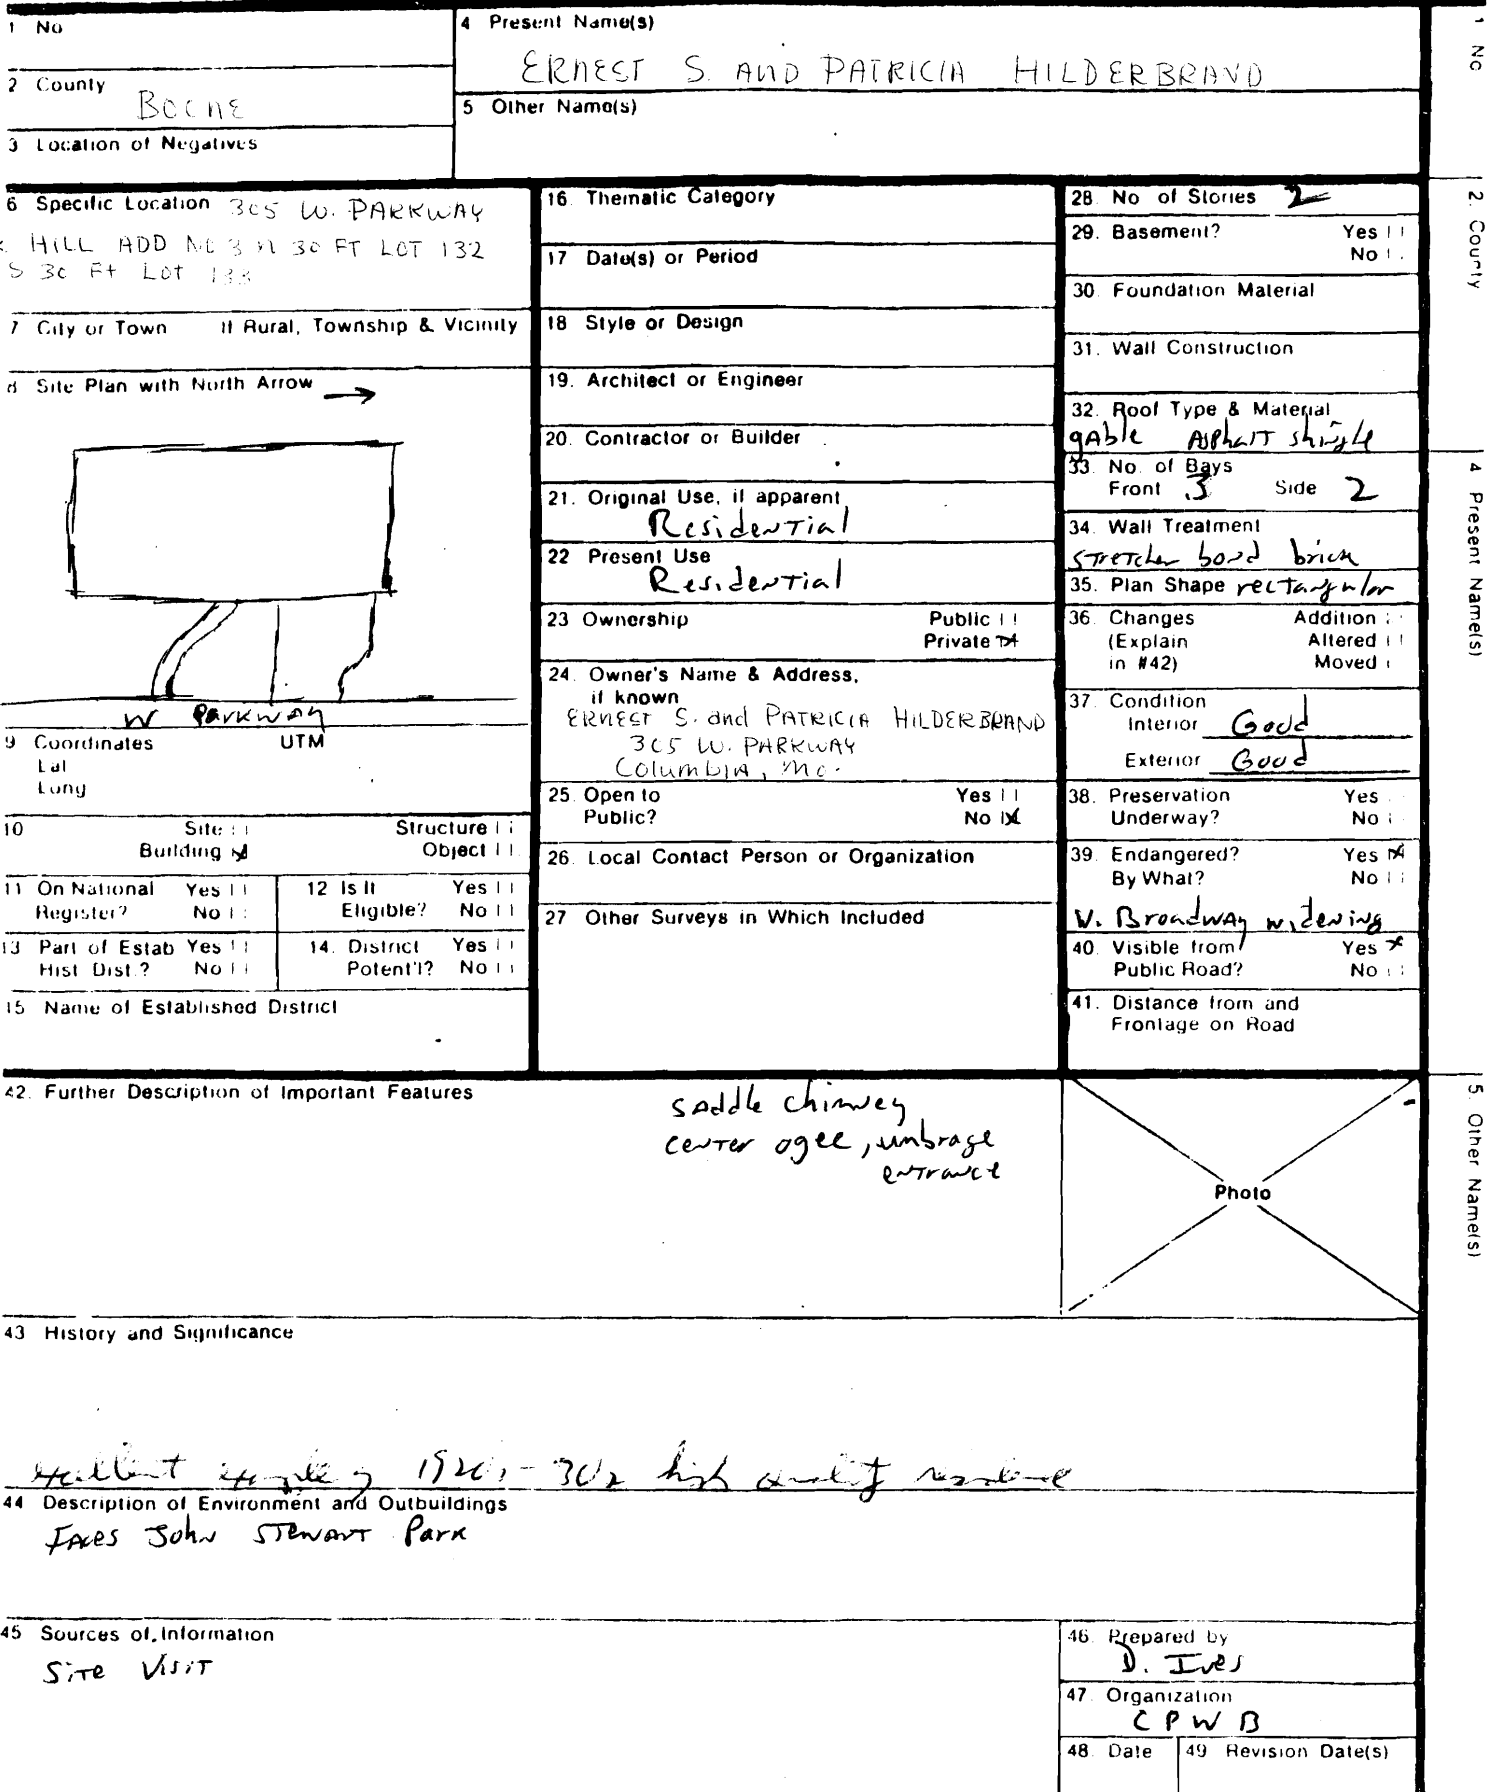 1 No
4 Present Name(s)
ERNEST S. AND PATRICIA HILDERBRAND
2 County
BOONE
5 Other Name(s)
3 Location of Negatives
6 Specific Location 305 W. PARKWAY
HILL ADD NO 3 N 30 FT LOT 132
S 30 Ft Lot 133
7 City or Town If Rural, Township & Vicinity
8 Site Plan with North Arrow
W Parkway
9 Coordinates UTM
Lat
Long
10 Site
Structure
Building
Object
11 On National Register? Yes No
12 Is It Eligible? Yes No
13 Part of Estab Hist Dist.? Yes No
14. District Potent'l? Yes No
15 Name of Established District
16. Thematic Category
17 Date(s) or Period
18 Style or Design
19. Architect or Engineer
20. Contractor or Builder
21. Original Use, if apparent
Residential
22 Present Use
Residential
23 Ownership Public
Private
24. Owner's Name & Address,
if known
ERNEST S. and PATRICIA HILDERBRAND
305 W. PARKWAY
Columbia, Mo.
25. Open to Yes
Public? No
26. Local Contact Person or Organization
27 Other Surveys in Which Included
28. No of Stories 2
29. Basement? Yes
No
30. Foundation Material
31. Wall Construction
32. Roof Type & Material
gable Asphalt shingle
33. No. of Bays
Front 3 Side 2
34. Wall Treatment
stretcher bond brick
35. Plan Shape rectangular
36. Changes Addition
(Explain Altered
in #42) Moved
37. Condition
Interior Good
Exterior Good
38. Preservation Yes
Underway? No
39. Endangered? Yes
By What? No
W. Broadway widening
40. Visible from Yes
Public Road? No
41. Distance from and
Frontage on Road
42. Further Description of Important Features
saddle chimney
center ogee, umbrage
entrance
Photo
43 History and Significance
excellent example of 1920s-30s high quality residence
44 Description of Environment and Outbuildings
Faces John Stewart Park
45 Sources of Information
Site Visit
46. Prepared by
D. Ives
47. Organization
CPWB
48. Date
49 Revision Date(s)
1 No
2. County
4 Present Name(s)
5. Other Name(s)